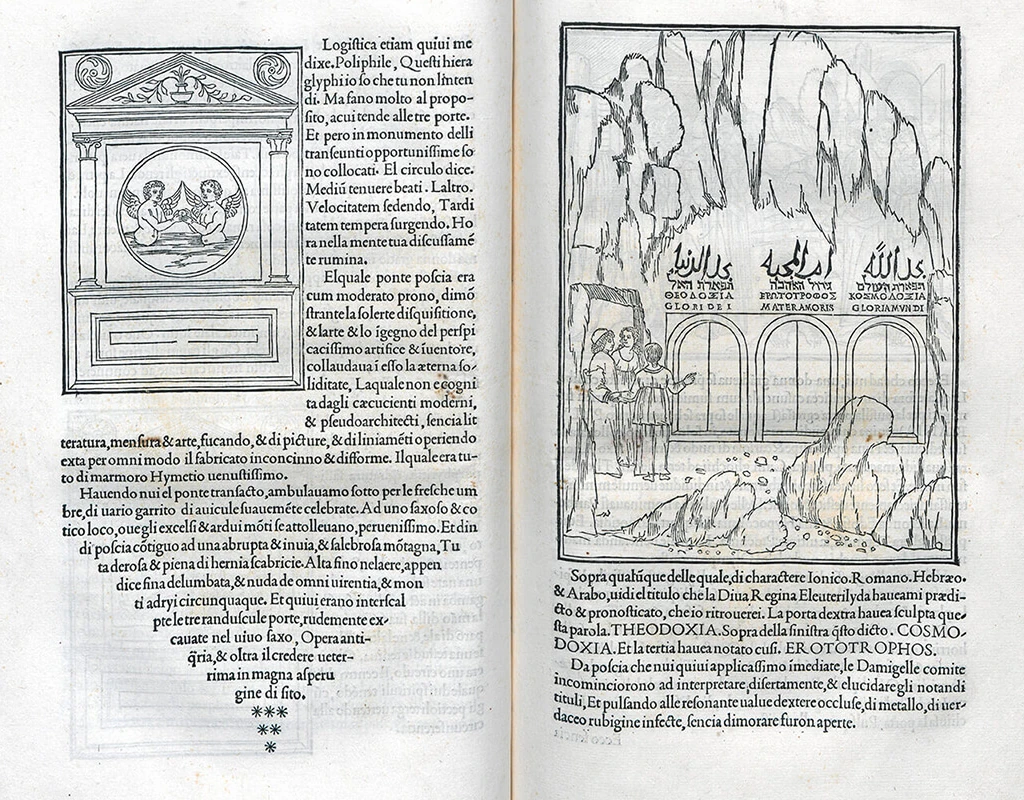 Logistica etiam quiui me
dixe. Poliphile, Questi hiera
glyphi io so che tu non lintēn
di. Ma fano molto al propo-
sito, a cui tende alle tre porte.
Et pero in monumento delli
transeunti opportunissime so
no collocati. El circulo dice.
Mediū tenuere beati. Laltro.
Velocitatem sedendo, Tardi
tatem tempera surgendo. Ho
ra nella mente tua discussamē
te rumina.
Elquale ponte poscia era
cum moderato prono, dimō
strante la solerte disquisitione,
& larte & lo īgegno del perspi
cacissimo artifice & iuentore,
collaudaua ī esso la æterna so-
liditate, Laquale non e cogni
ta dagli cæcucienti moderni,
& pseudoarchitecti, sencia lit
teratura, mensura & arte, fucando, & di picture, & di liniamēti operiendo
exta per omni modo il fabricato inconcinno & difforme. Il quale era tu-
to di marmoro Hymetio uenustissimo.
Hauendo nui el ponte transacto, ambulauamo sotto per le fresche um
bre, di uario garrito di auicule suauemēte celebrate. Ad uno saxoso & co
tico loco, oue gli excelsi & ardui mōti se attolleuano, peruenissimo. Et din
di poscia cōtiguo ad una abrupta & inuia, & salebrosa mōtagna, Tu
ta derosa & piena di hernia scabricie. Alta fino nelaere, appen
dice fina delumbata, & nuda de omni uirentia, & mon
ti adyri circunquaque. Et quiui erano interscal
pte le tre randuscule porte, rudemente ex-
cauate nel uiuo saxo, Opera anti-
q̄ria, & oltra il credere ueter-
rima in magna asperu
gine di sito.
***
**
*
תפארת האל
גידול האהבה
תפארת העולם
ΘΕΟΔΟΞΙΑ
ΕΡΩΤΟΤΡΟΦΟΣ
ΚΟΣΜΟΔΟΞΙΑ
GLORI DEI
MATER AMORIS
GLORIA MUNDI
Sopra qualūque delle quale, di charactere Ionico. Romano. Hebræo.
& Arabo, uidi el titulo che la Diua Regina Eleuterilyda haueami prædi-
cto & pronosticato, che io ritrouerei. La porta dextra hauea sculpta que-
sta parola. THEODOXIA. Sopra della sinistra q̄sto dicto. COSMO-
DOXIA. Et la tertia hauea notato cusi. EROTOTROPHOS.
Da poscia che nui quiui applicassimo īmediate, le Damigelle comite
incominciorono ad interpretare, disertamente, & elucidare gli notandi
tituli, Et pulsando alle resonante ualue dextere occluse, di metallo, di uer-
daceo rubigine infecte, sencia dimorare furon aperte.